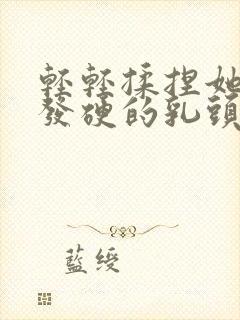 輕輕揉捏她
發硬的乳頭
藍綬